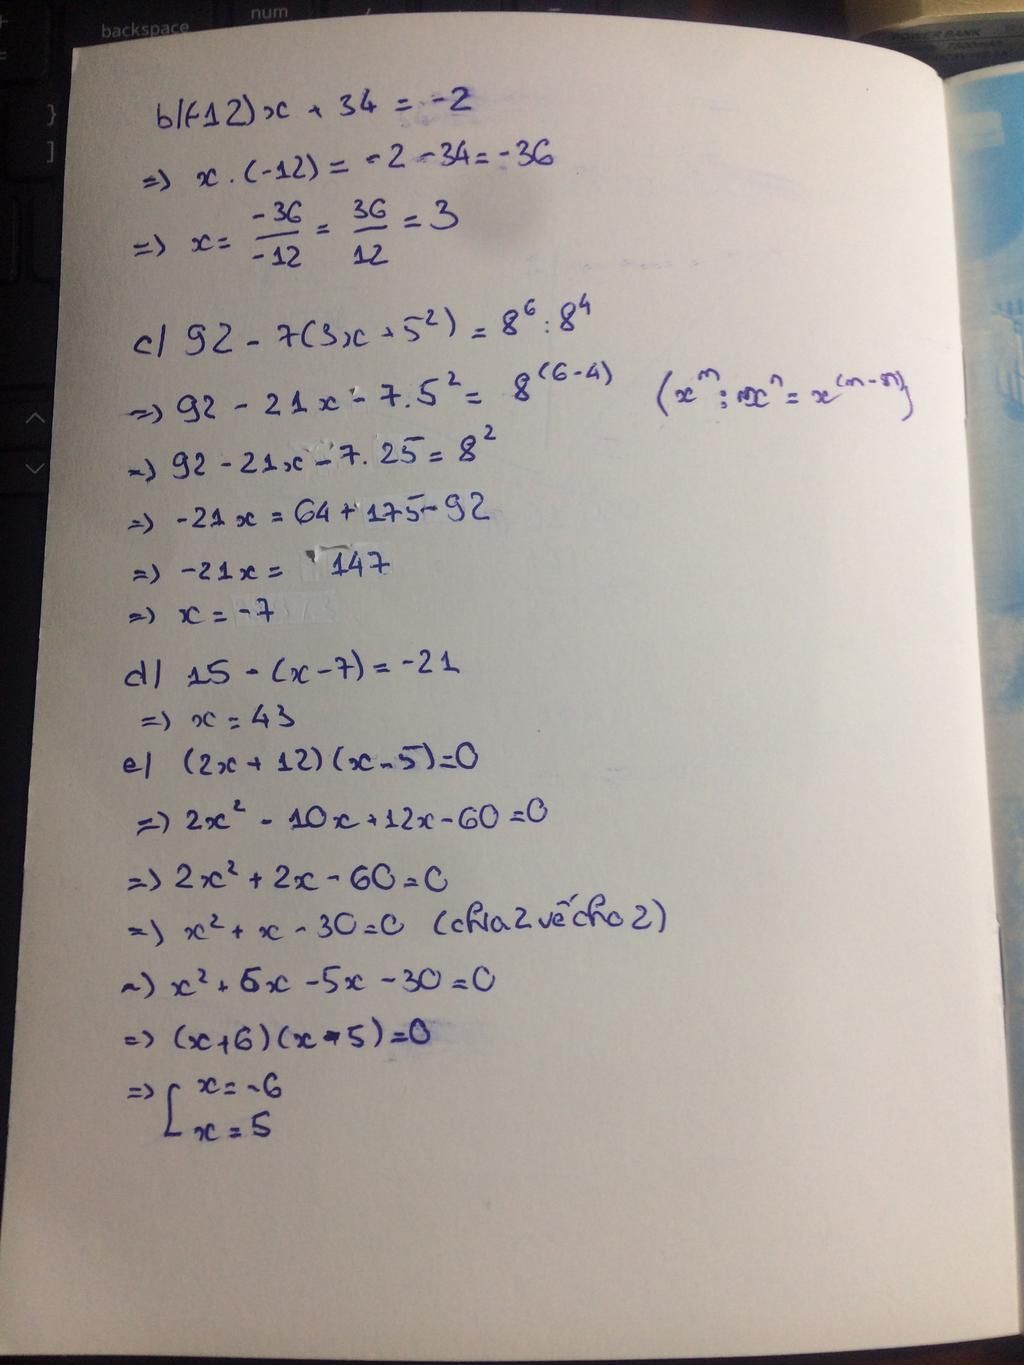 num
backspace
POWER BANK
}
]
b/(-12)x + 34 = -2
=> x . (-12) = -2 - 34 = -36
=> x = -36/-12 = 36/12 = 3
c/ 92 - 7(3x + 5²) = 8⁶ : 8⁴
=> 92 - 21x - 7.5² = 8^(6-4) (x^m : x^n = x^(m-n))
=> 92 - 21x - 7.25 = 8²
=> -21x = 64 + 175 - 92
=> -21x = 147
=> x = -7
d/ 15 - (x - 7) = -21
=> x = 43
e/ (2x + 12)(x - 5) = 0
=> 2x² - 10x + 12x - 60 = 0
=> 2x² + 2x - 60 = 0
=> x² + x - 30 = 0 (chia 2 vế cho 2)
=> x² + 6x - 5x - 30 = 0
=> (x + 6)(x - 5) = 0
=> [ x = -6
x = 5